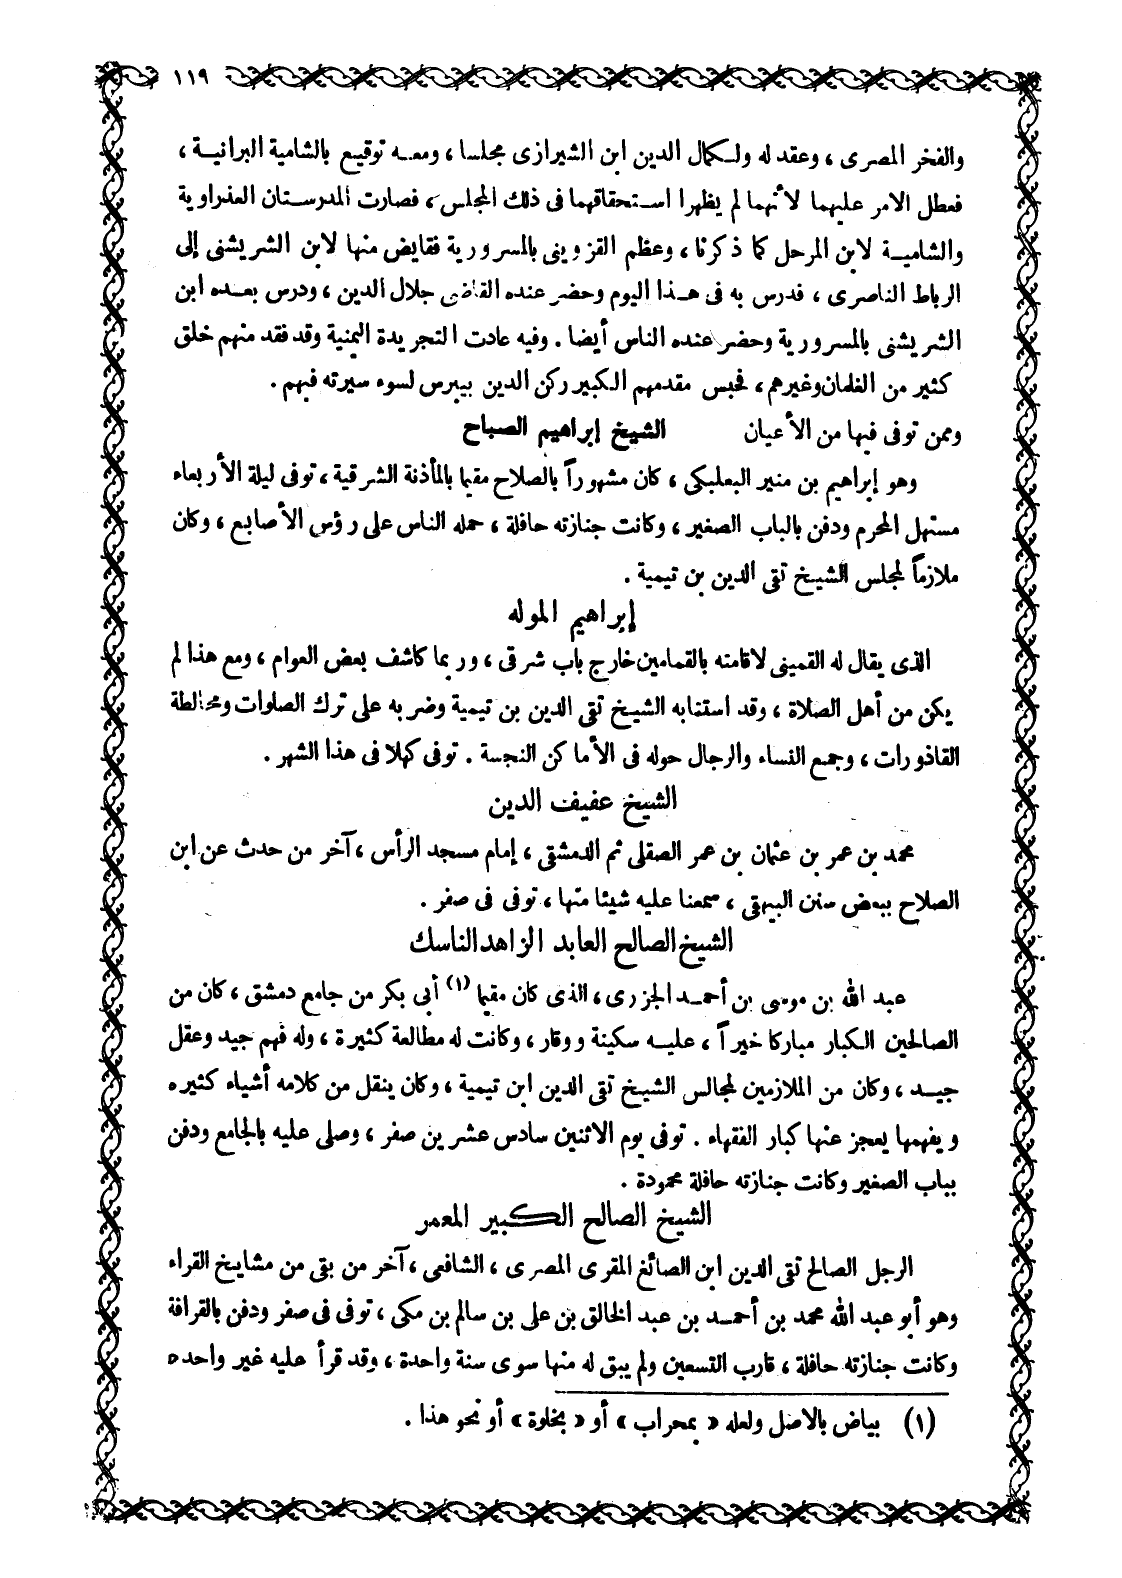 ١١٩
والفخر المصرى ، وعقد له ولكمال الدين ابن الشيرازى مجلسا ، ومعه توقيع بالشامية البرانية ،
فعطل الامر عليهما لأنهما لم يظهرا استحقاقهما فى ذلك المجلس ، فصارت المدرستان العذراوية
والشامية لابن المرحل كما ذكرنا ، وعظم القزوينى بالمسرورية فقايض منها لابن الشريشنى إلى
الرباط الناصرى ، فدرس به فى هذا اليوم وحضر عنده القاضى جلال الدين ، ودرس بعده ابن
الشريشنى بالمسرورية وحضر عنده الناس أيضا . وفيه عادت التجريدة اليمنية وقد فقد منهم خلق
كثير من الغلمان وغيرهم ، فحبس مقدمهم الكبير ركن الدين بيبرس لسوء سيرته فيهم .
وممن توفى فيها من الأعيان الشيخ إبراهيم الصباح
وهو إبراهيم بن منير البعلبكى ، كان مشهوراً بالصلاح مقيما بالمأذنة الشرقية ، توفى ليلة الأربعاء
مستهل المحرم ودفن بالباب الصغير ، وكانت جنازته حافلة ، حمله الناس على رؤس الأصابع ، وكان
ملازماً لمجلس الشيخ تقى الدين بن تيمية .
إبراهيم الموله
الذى يقال له القمينى لاقامته بالقمامين خارج باب شرقى ، وربما كاشف بعض العوام ، ومع هذا لم
يكن من أهل الصلاة ، وقد استتابه الشيخ تقى الدين بن تيمية وضربه على ترك الصلوات ومخالطة
القاذورات ، وجمع النساء والرجال حوله فى الأماكن النجسة . توفى كهلا فى هذا الشهر .
الشيخ عفيف الدين
محمد بن عمر بن عثمان بن عمر الصقلى ثم الدمشقى ، إمام مسجد الرأس ، آخر من حدث عن ابن
الصلاح ببعض سنن البيهقى ، سمعنا عليه شيئا منها ، توفى فى صفر .
الشيخ الصالح العابد الزاهد الناسك
عبد الله بن موسى بن أحمد الجزرى ، الذى كان مقيما (١) أبى بكر من جامع دمشق ، كان من
الصالحين الكبار مباركا خيراً ، عليه سكينة ووقار ، وكانت له مطالعة كثيرة ، وله فهم جيد وعقل
جيد ، وكان من الملازمين لمجالس الشيخ تقى الدين ابن تيمية ، وكان ينقل من كلامه أشياء كثيره
ويفهمها يعجز عنها كبار الفقهاء . توفى يوم الاثنين سادس عشرين صفر ، وصلى عليه بالجامع ودفن
بباب الصغير وكانت جنازته حافلة محمودة .
الشيخ الصالح الكبير المعمر
الرجل الصالح تقى الدين ابن الصائغ المقرى المصرى ، الشافعى ، آخر من بقى من مشايخ القراء
وهو أبو عبد الله محمد بن أحمد بن عبد الخالق بن على بن سالم بن مكى ، توفى فى صفر ودفن بالقرافة
وكانت جنازته حافلة ، قارب التسعين ولم يبق له منها سوى سنة واحدة ، وقد قرأ عليه غير واحده
(١) بياض بالاصل ولعله « بمحراب » أو « بخلوة » أو نحو هذا .